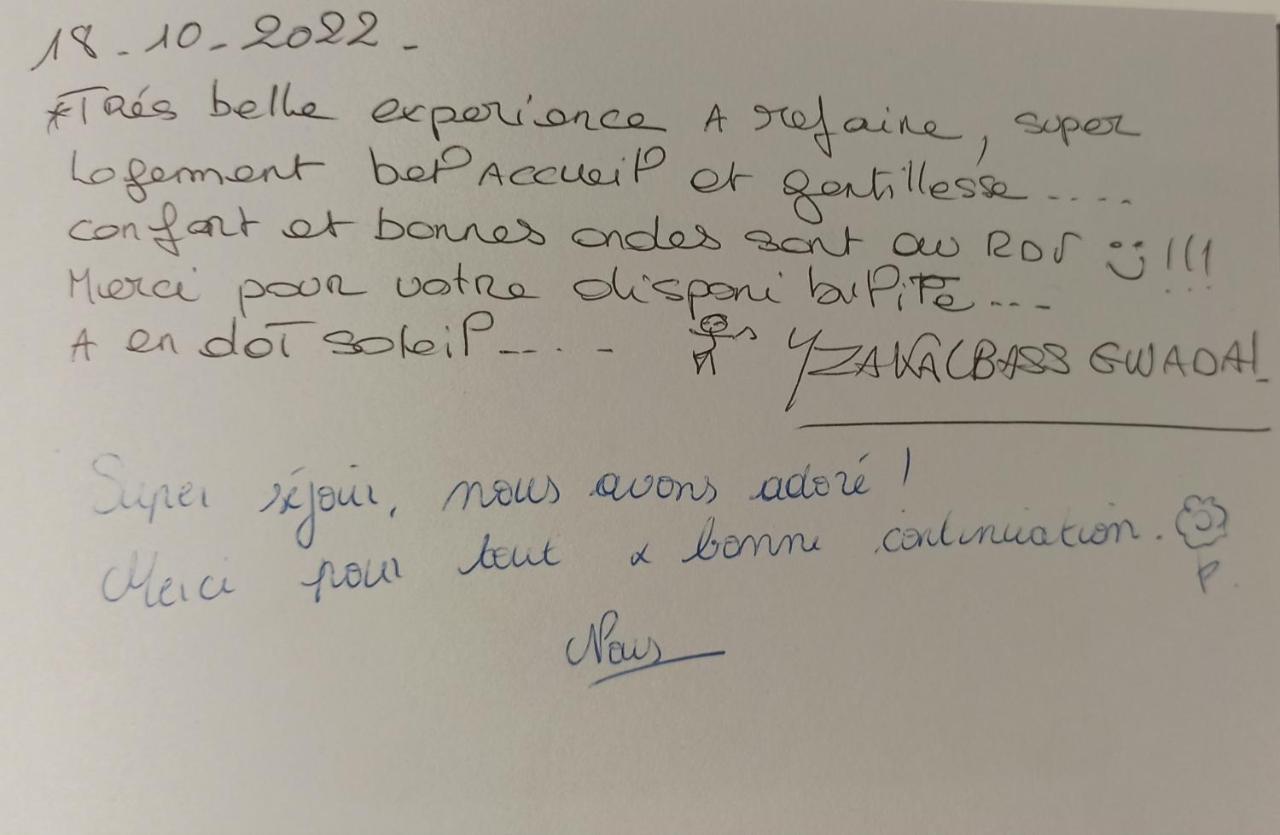 18-10-2022-
*Trés belle experience A refaire, super
Logement bel Accueil et gentillesse....
confort et bonnes ondes sont au RDV !!!
Merci pour votre disponibilite...
A en dòt soleil....
Super séjour, nous avons adoré !
Merci pour tout & bonne continuation.
Nous